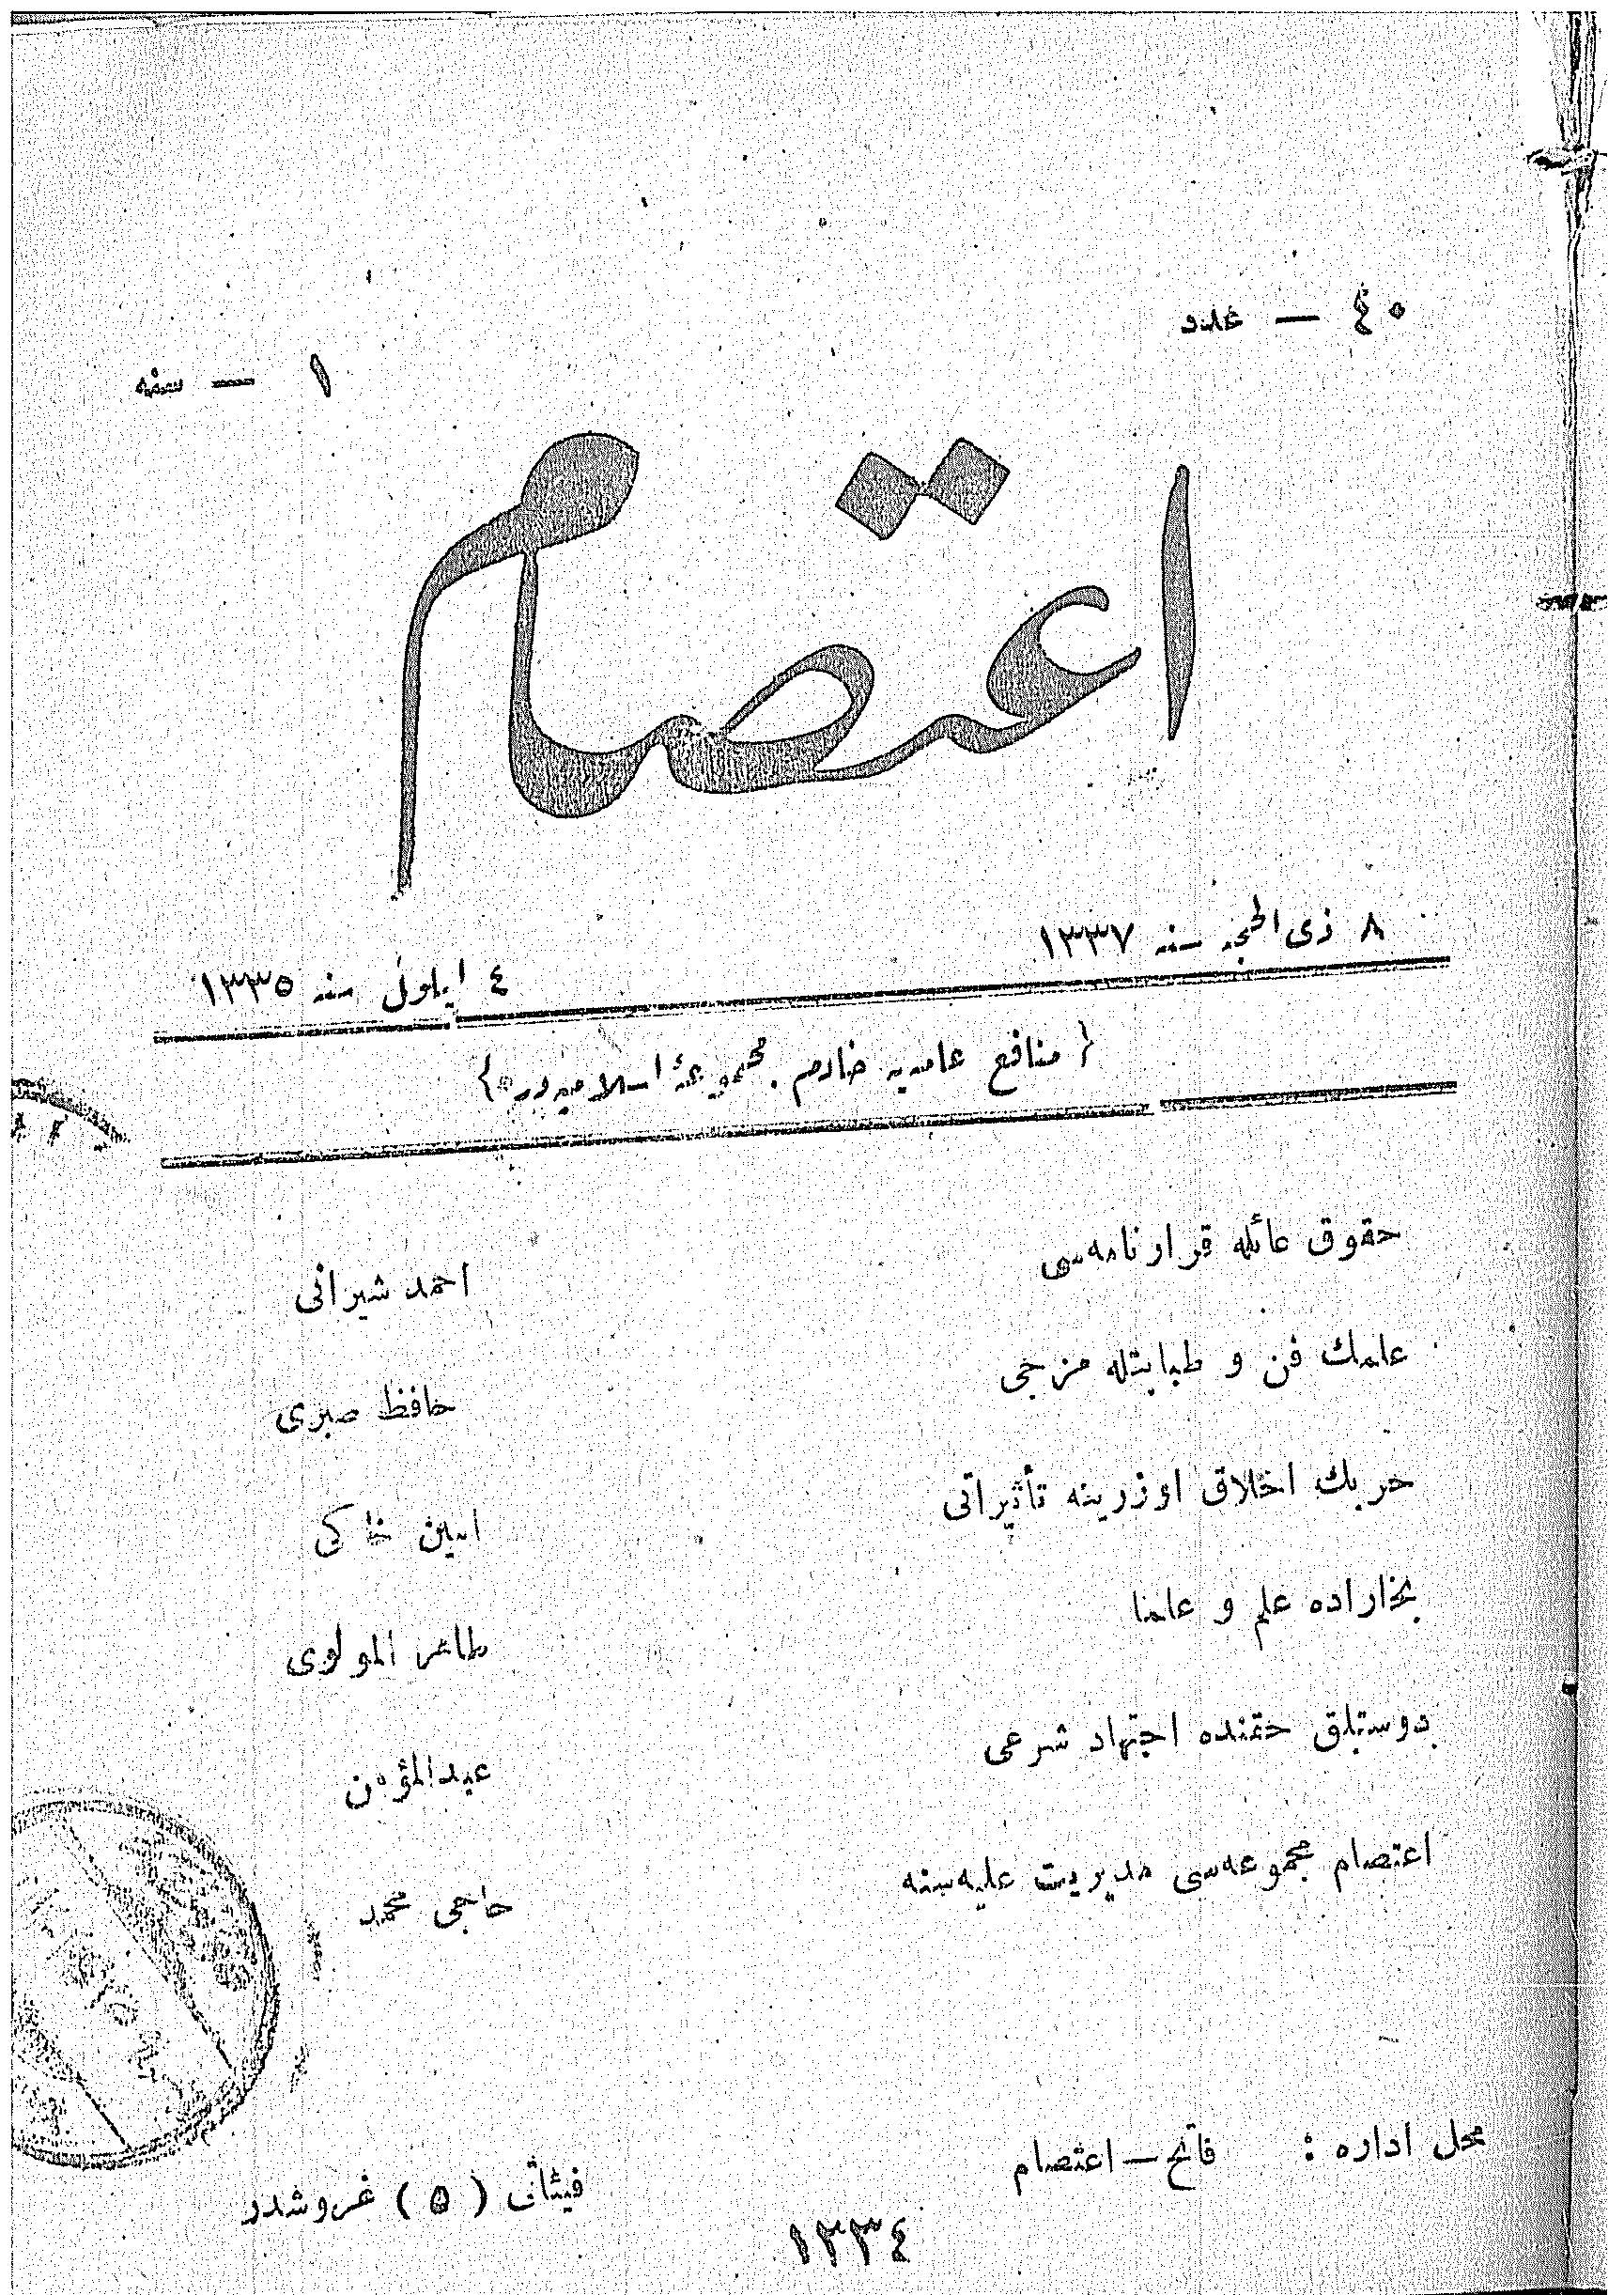 ٤٠ — عدد
١ — سنه
اعتصام
٨ ذی الحجه سنه ١٣٣٧
٤ ایلول سنه ١٣٣٥
{ منافع عامه‌یه خادم مجموعهٔ اسلامیه‌در }
حقوق عائله قرارنامه‌سی احمد شیرانی
علمك فن و طبابتله مزجی حافظ صبری
حربك اخلاق اوزرینه تأثیراتی امین خاکی
بخاراده علم و علما طاهر المولوی
دوستلق حقنده اجتهاد شرعی عبدالمؤمن
اعتصام مجموعه‌سی مدیریت علیه‌سنه حاجی محمد
محل اداره : فاتح — اعتصام
فیئاتی ( ٥ ) غروشدر
١٣٣٤